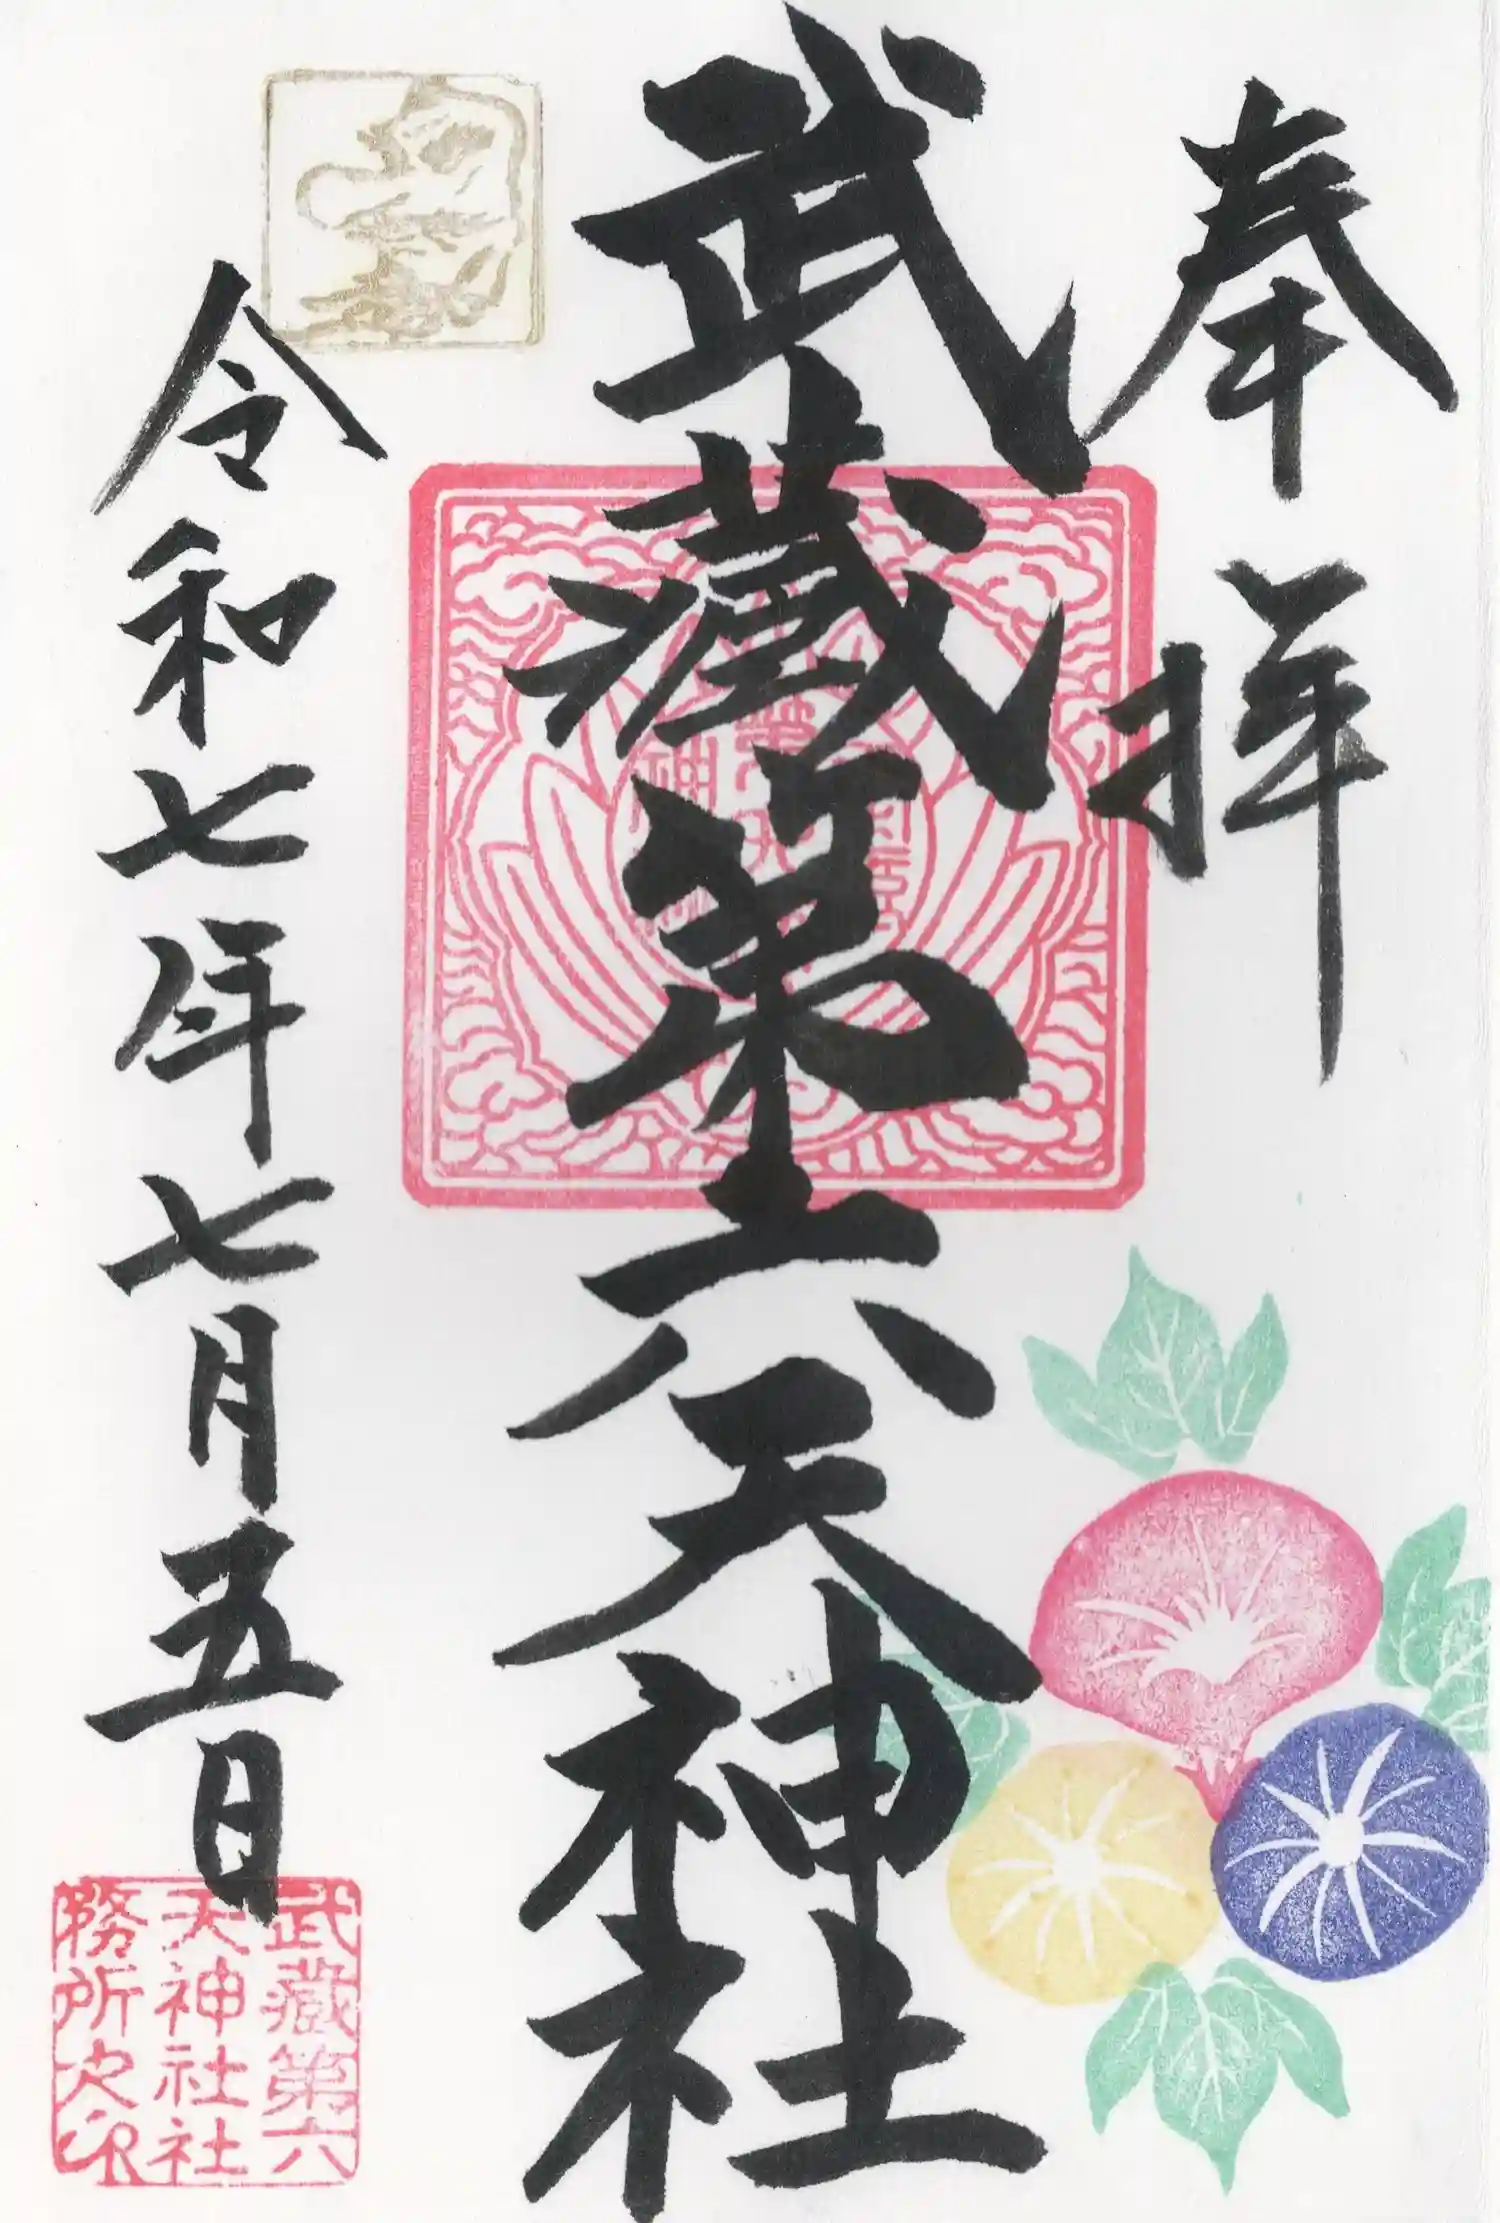 奉拝
武藏第六天神社
令和七年七月五日
武藏第六
天神社社
務所之印